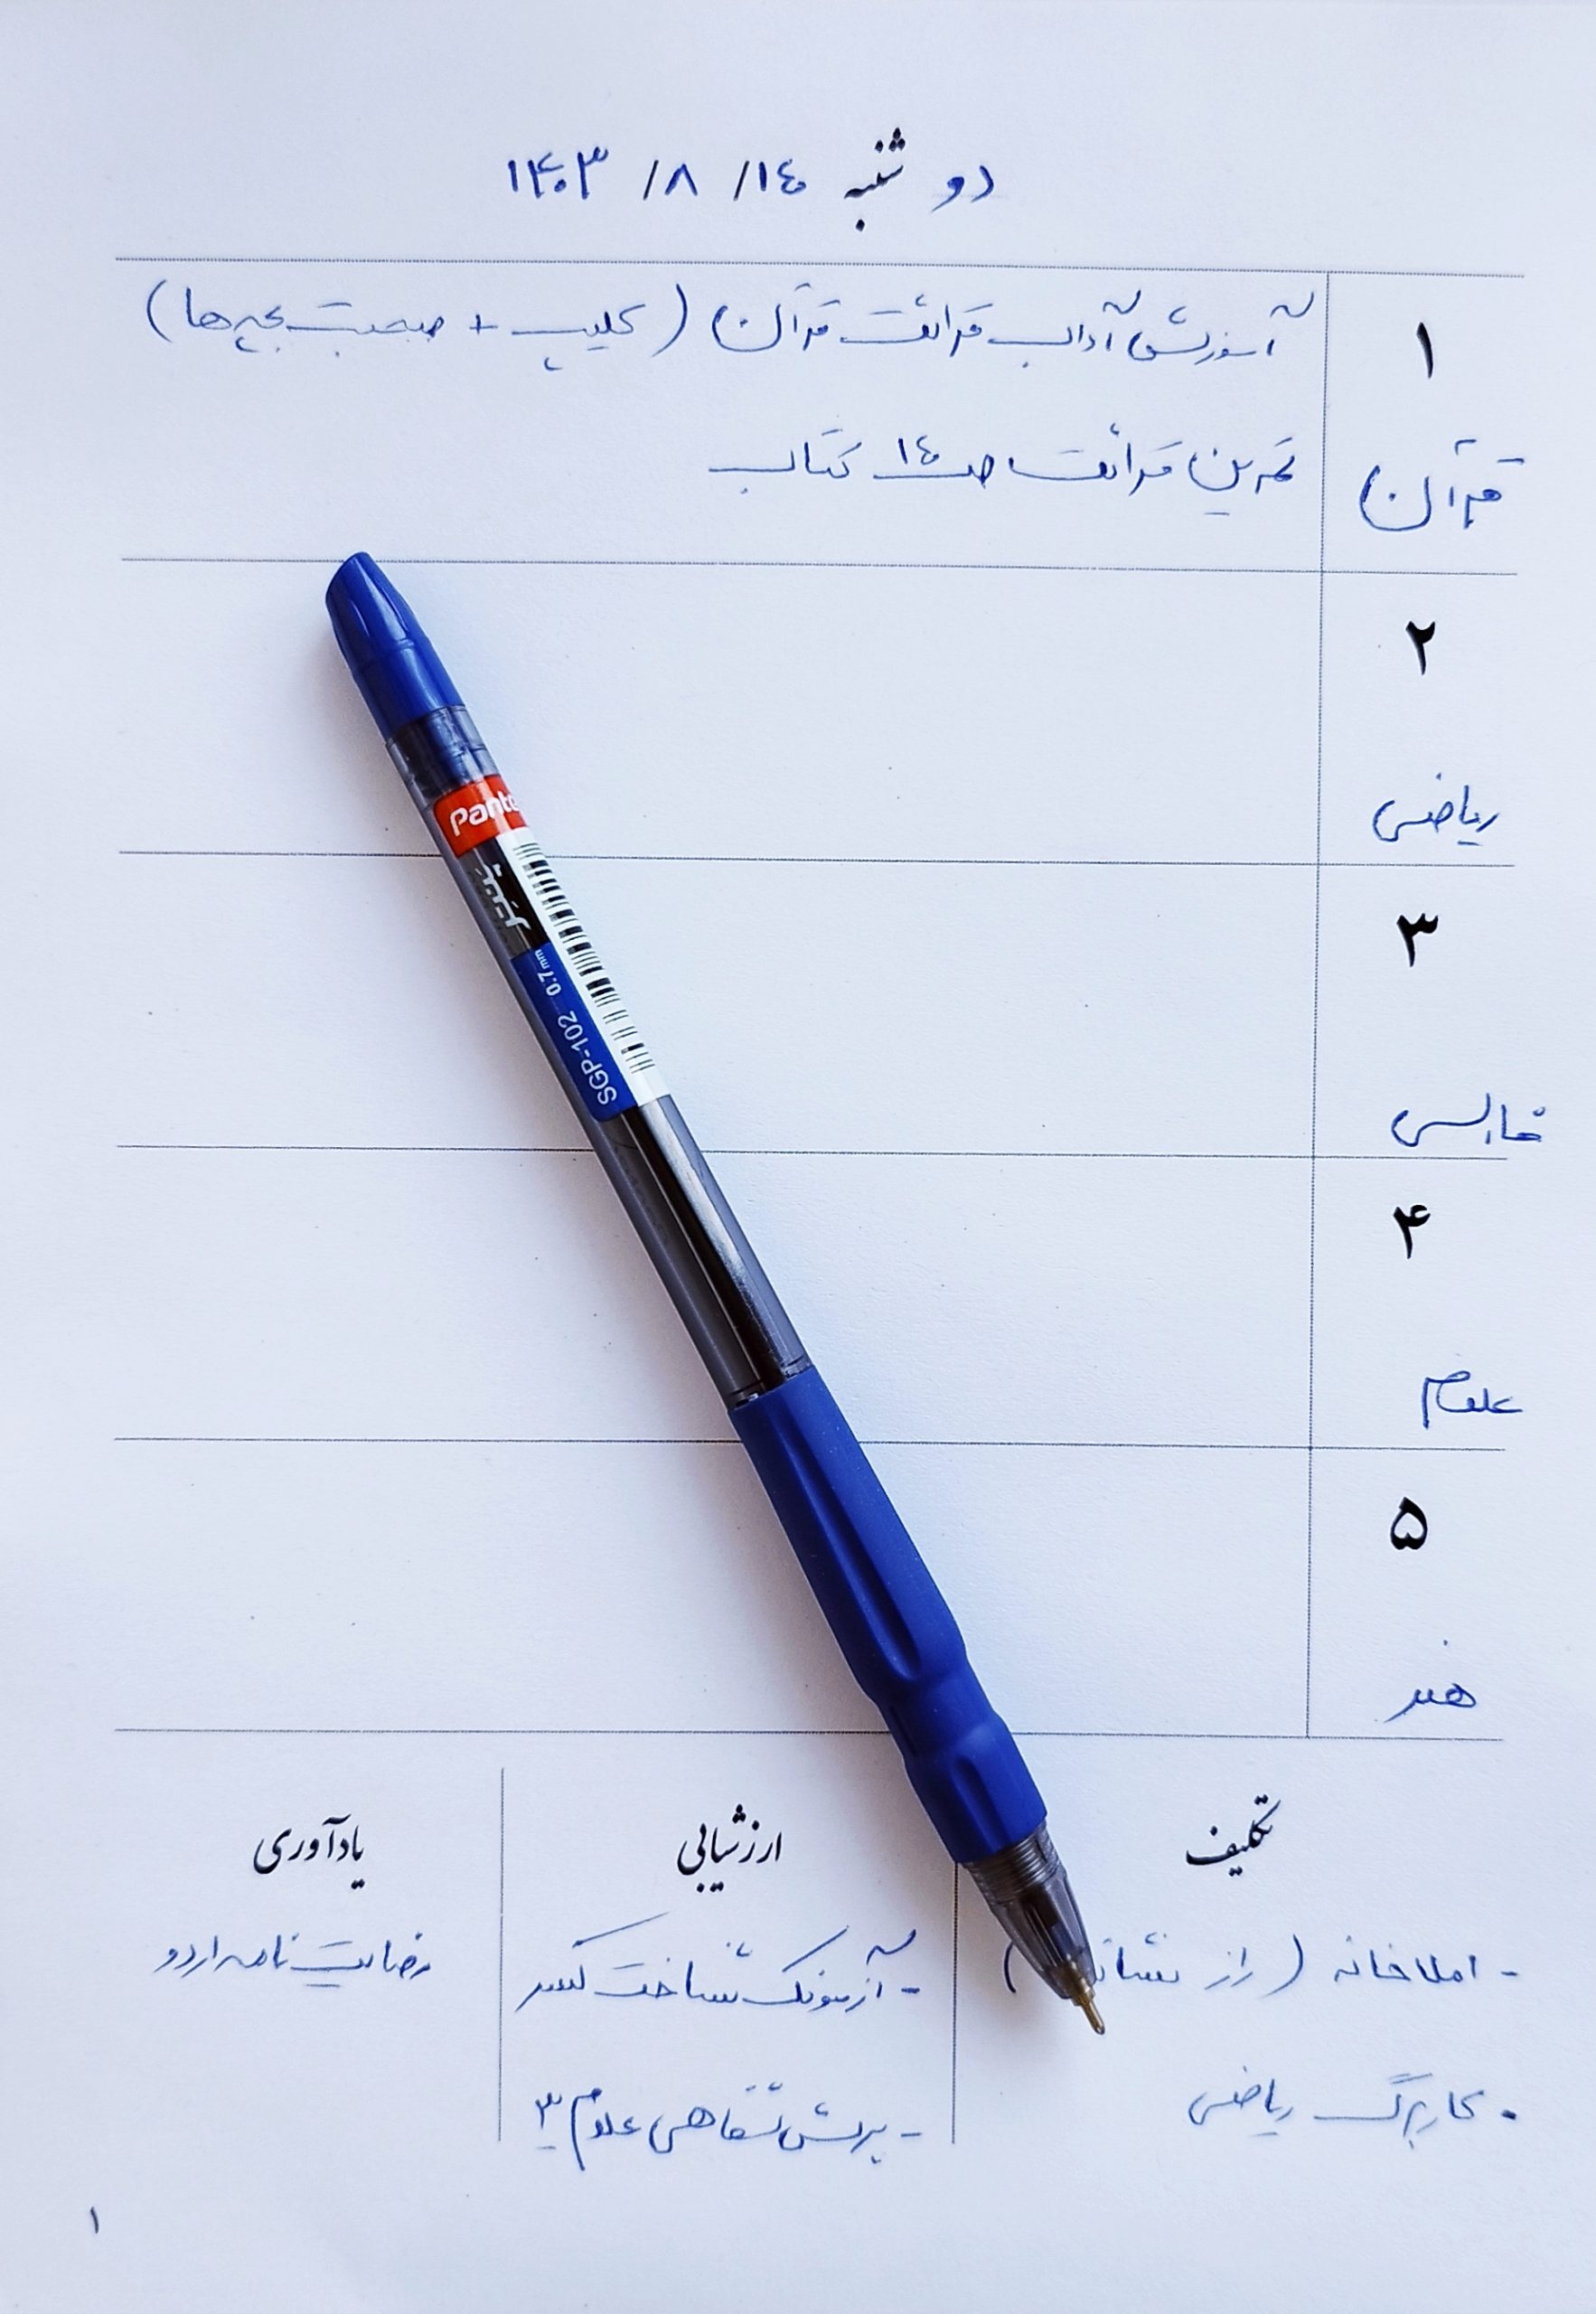 دو شنبه ۱٤/ ۸/ ۱۴۰۳
۱
قرآن
آموزش آداب قرائت قرآن (کلیپ + صحبت بچه‌ها)
تمرین قرائت ص ۱٤ کتاب
۲
ریاضی
۳
فارسی
۴
علوم
۵
هنر
Pante
پنتر
SGP-102 0.7 mm
تکلیف
- املا خانه (راز نشانه)
• کاربرگ ریاضی
ارزشیابی
- آزمونک شناخت کسر
- پرسش شفاهی علوم ۳
یادآوری
رضایت نامه اردو
۱